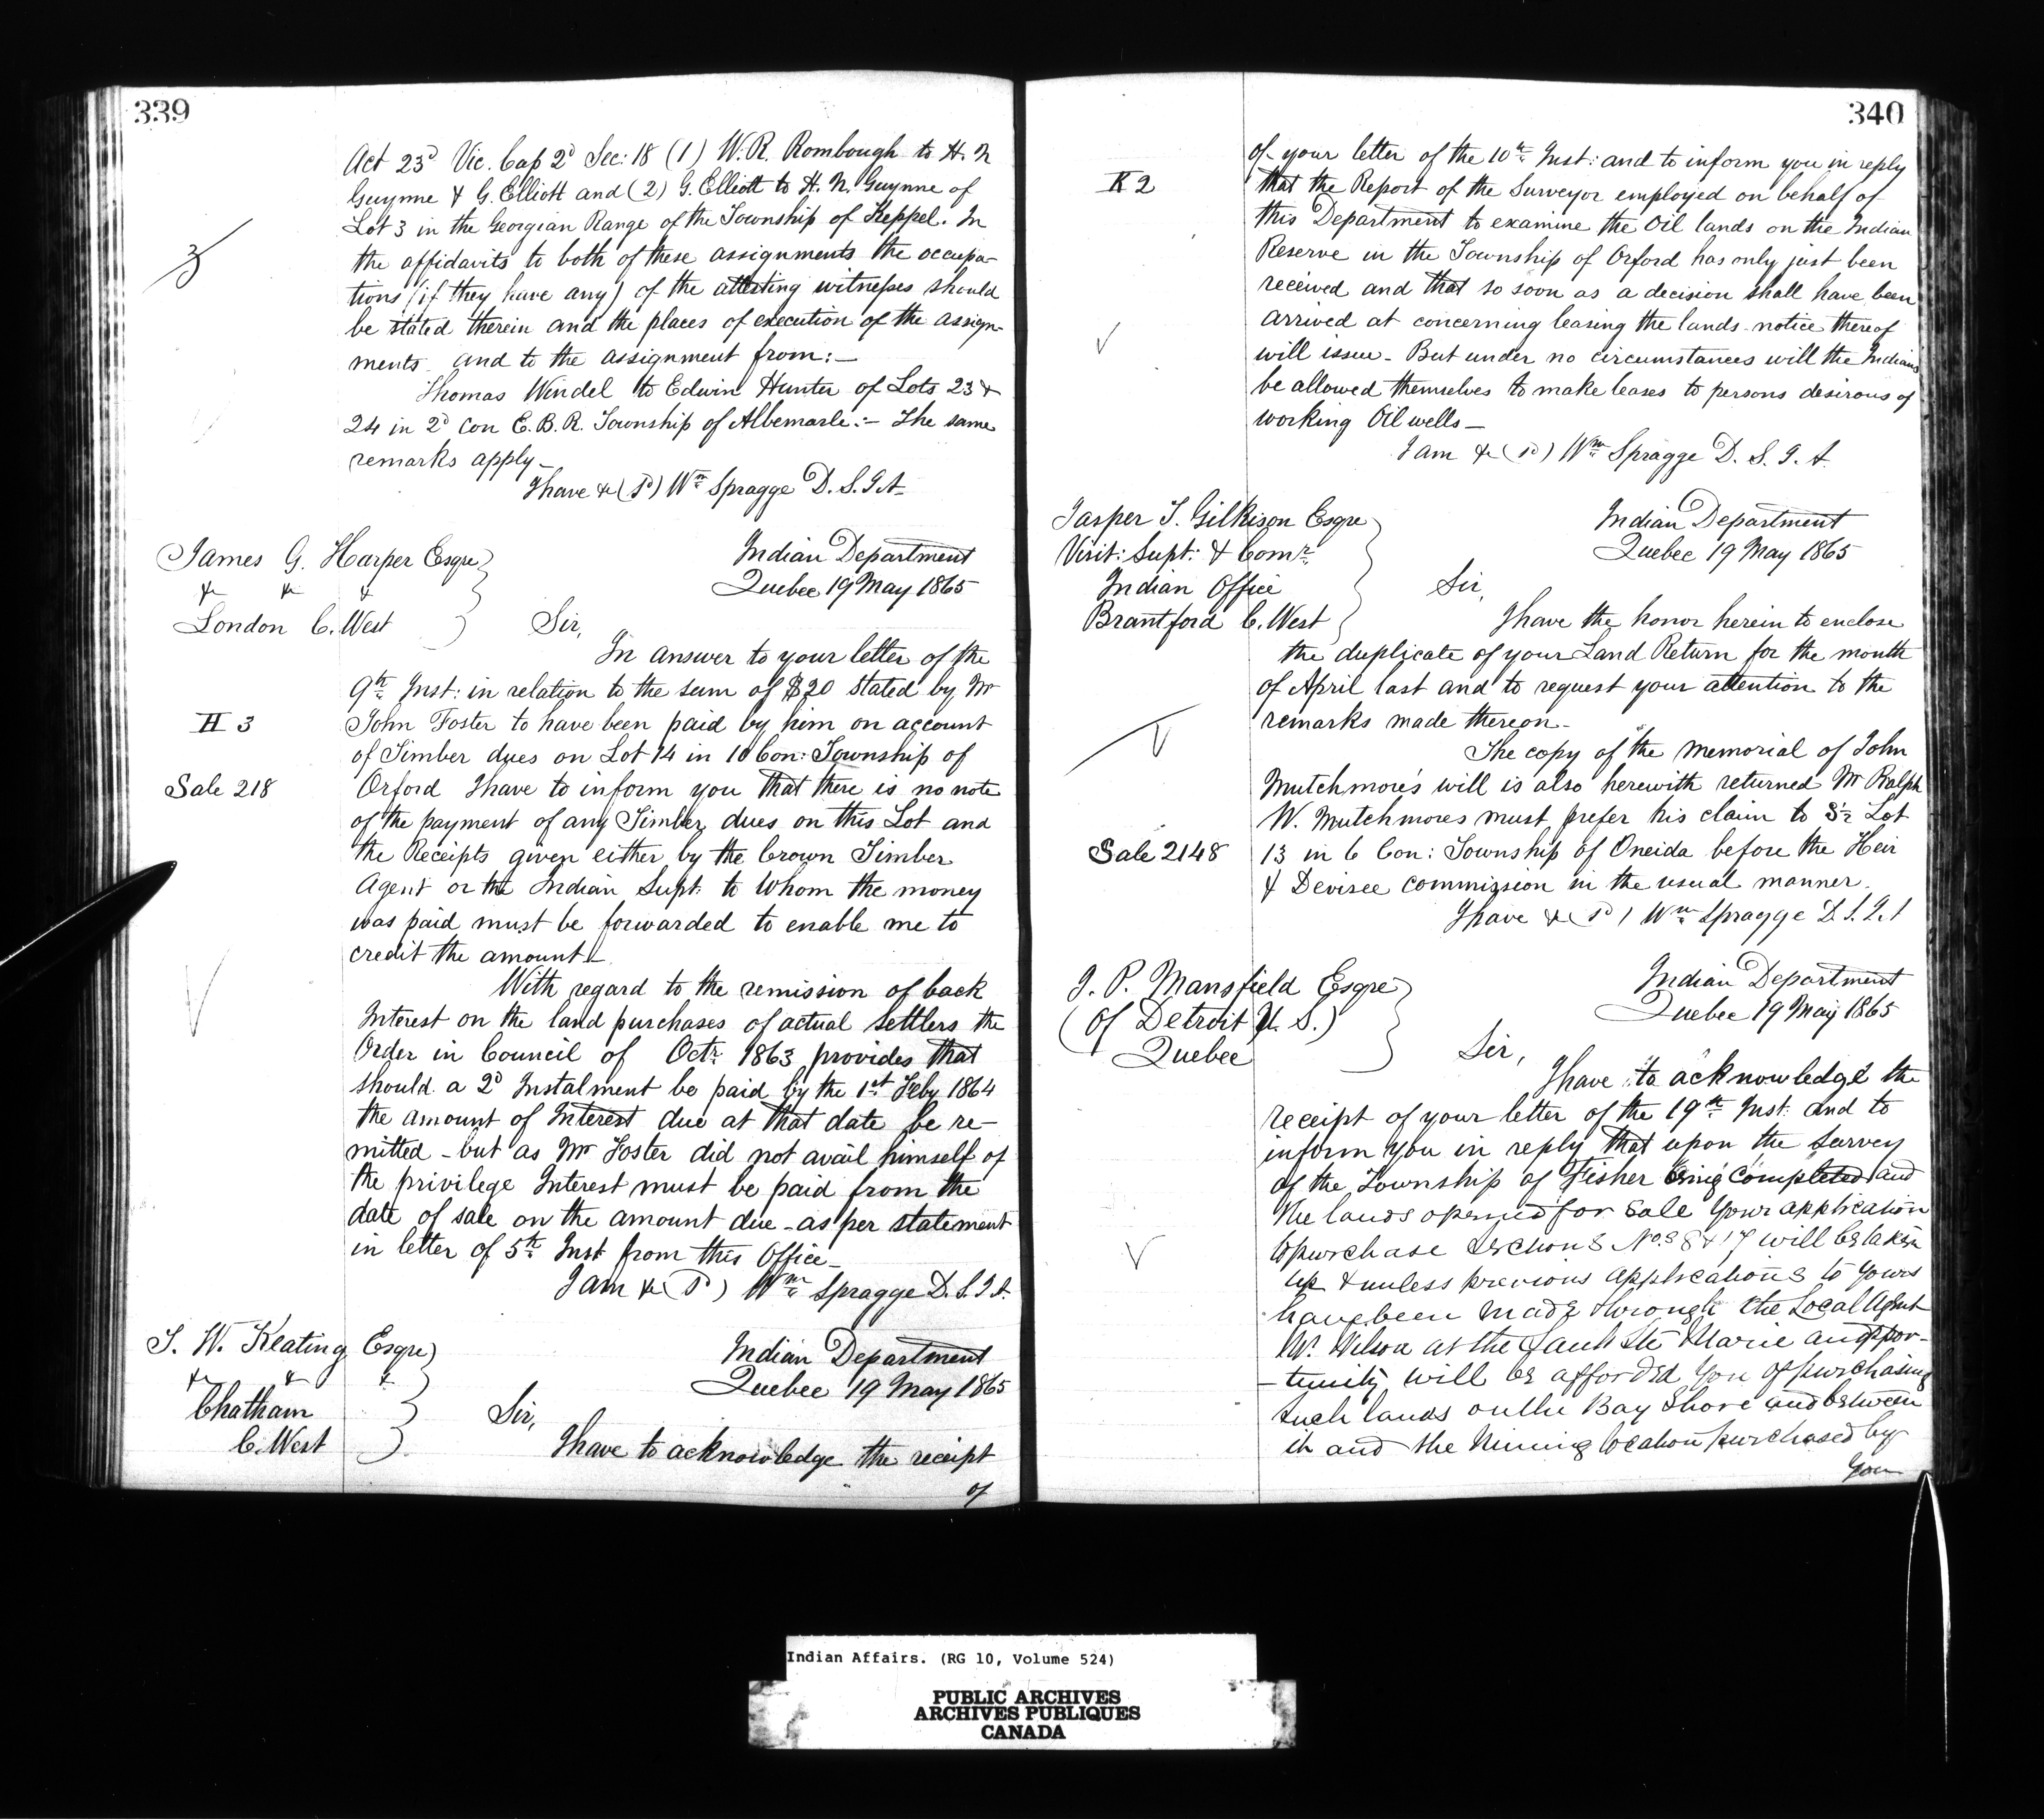 339
Act 23d Vic. Cap 2d Sec: 18 (1) W. R. Rombough to H. N
Gwynne & G. Elliott and (2) G. Elliott to H. N. Gwynne of
Lot 3 in the Georgian Range of the Township of Keppel. In
the affidavits to both of these assignments the occupa-
tions (if they have any) of the attesting witnesses should
be stated therein and the places of execution of the assign-
ments and to the assignment from:—
Thomas Windel to Edwin Hunter of Lots 23 &
24 in 2d Con E. B. R. Township of Albemarle:— The same
remarks apply—
I have &c (Sd) Wm Spragge D. S. I. A.
James G. Harper Esqre
&c &c &c
London C. West
Indian Department
Quebec 19 May 1865
Sir,
In answer to your letter of the
9th Inst: in relation to the sum of $20 stated by Mr
H 3
John Foster to have been paid by him on account
of Timber dues on Lot 14 in 10 Con: Township of
Sale 218
Orford I have to inform you that there is no note
of the payment of any Timber dues on this Lot and
the Receipts given either by the Crown Timber
Agent or the Indian Supt: to whom the money
was paid must be forwarded to enable me to
credit the amount—
With regard to the remission of back
Interest on the land purchases of actual settlers the
Order in Council of Octr. 1863 provides that
should a 2d Instalment be paid by the 1st Feby 1864
the amount of Interest due at that date be re-
mitted - but as Mr Foster did not avail himself of
the privilege Interest must be paid from the
date of sale on the amount due - as per statement
in letter of 5th Inst from this Office—
I am &c (Sd) Wm Spragge D. S. I. A.
T. W. Keating Esqre
&c &c &c
Chatham
C. West
Indian Department
Quebec 19 May 1865
Sir,
I have to acknowledge the receipt
of
340
of your letter of the 10th Inst: and to inform you in reply
K 2
that the Report of the Surveyor employed on behalf of
this Department to examine the Oil lands on the Indian
Reserve in the Township of Orford has only just been
received and that so soon as a decision shall have been
arrived at concerning leasing the lands notice thereof
will issue - But under no circumstances will the Indians
be allowed themselves to make leases to persons desirous of
working Oil wells—
I am &c (Sd) Wm Spragge D. S. I. A.
Jasper T. Gilkison Esqre
Visit: Supt: & Comr.
Indian Office
Brantford C. West
Indian Department
Quebec 19 May 1865
Sir,
I have the honor herein to enclose
the duplicate of your Land Return for the month
of April last and to request your attention to the
remarks made thereon—
The copy of the memorial of John
Mutchmore's will is also herewith returned Mr Ralph
W. Mutchmores must prefer his claim to S½ Lot
Sale 2148
13 in 6 Con: Township of Oneida before the Heir
& Devisee Commission in the usual manner.
I have &c (Sd) Wm Spragge D. S. I. A
J. P. Mansfield Esqre
(Of Detroit U. S.)
Quebec
Indian Department
Quebec 19 May 1865
Sir,
I have to acknowledge the
receipt of your letter of the 19th Inst: and to
inform you in reply that upon the survey
of the Township of Fisher being completed and
the lands opened for Sale Your application
to purchase Sections Nos 8 & 17 will be taken
up & unless previous applications to yours
have been made through the Local Agent
Mr. Wilson at the Sault Ste Marie an oppor-
-tunity will be afforded you of purchasing
such lands on the Bay Shore and between
it and the Mining location purchased by
you
Indian Affairs. (RG 10, Volume 524)
PUBLIC ARCHIVES
ARCHIVES PUBLIQUES
CANADA